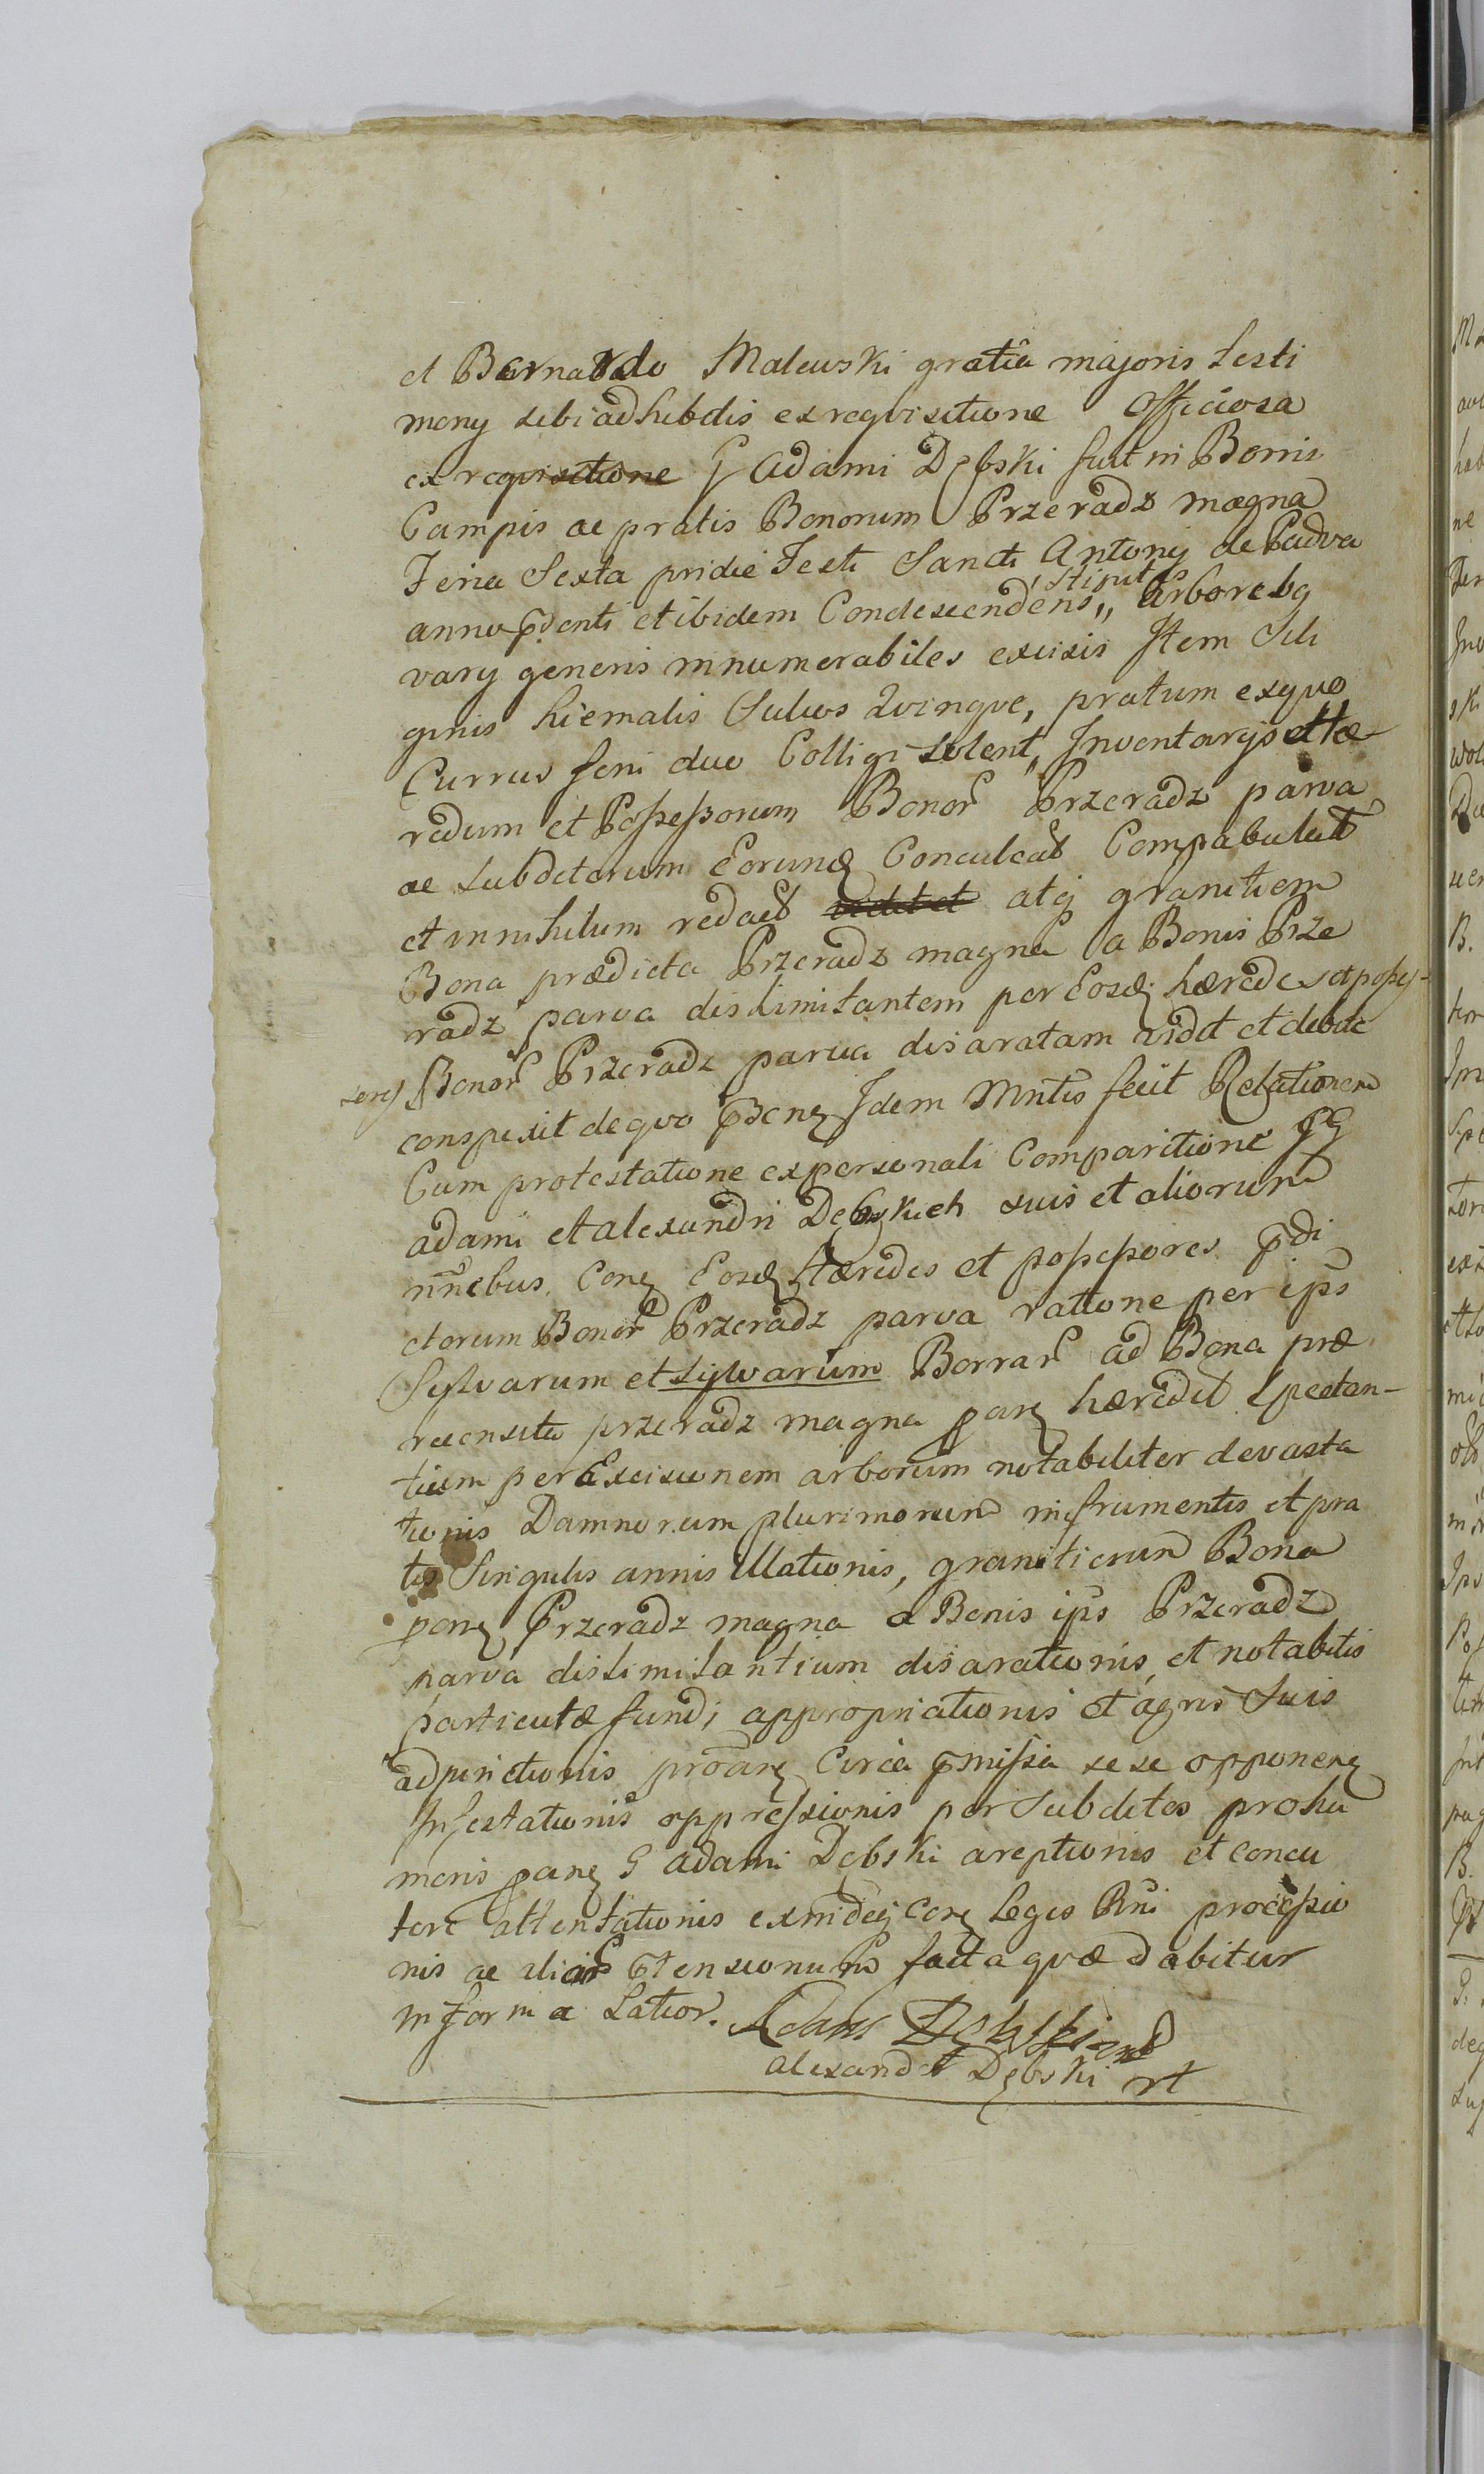 et Bernardo Malewski gratia majoris testi
mony sibi adhibitis ex reqvisitione Officiosa
ex reqvisitione G Adami Dębski fuit in Bonis
Campis ac pratis Bonorum Przeradz magna
Feria Sexta pridie Festi Sancti Antonij de Padva
anno pdenti et ibidem Condescendens, Stipit, arborebq
varij generis innumerabiles excisis Item Sili
ginis hiemalis Sulcos Qvinqve, pratum ex qvo
Currus feni duo Colligi solent, Inventarijs Hæ
redum et Possessorum Bonor Przeradz parva
ac subditorum Eorundq Conculcat Compabulat
et in nihilum redact vidit et atq granitiem
Bona prædicta Przeradz magna a Bonis Prze
radz parva dislimitantem per Eosdq hæredes et posses-
sores Bonor Przeradz parva disaratam vidit et debite
conspexit de qvo Idem Mntis fecit Relationem
Cum protestatione ex personali Comparitione GG
Adami et Alexandri Dębskich suis et aliorum
nnebus. Conq Eosdq Hæredes et possessores pdi
ctorum Bonor Przeradz parva ratione per ips
Sylvarum et sylvarum Borrar ad Bona præ
recensita Przeradz magna hæredit Spectan-
tium per Excisionem arborum notabiliter devasta
tionis Damnorum plurimorum in frumentis et pra
tis Singulis annis illationis, granitierum Bona
Przeradz magna a Bonis ips Przeradz
parva dislimitantium disarationis et notabilis
particulæ fundi appropriationis et agris Suis
adjunctionis Circa pmissa se se opponenq
Infestationis oppressionis per Subditos pro hu
meris G Adami Dębski areptionis et concu
tere attentationis legis Rni processio
nis ac aliar Ptensionum facta qvæ dabitur
in forma Latior. Adam Dębski
Alexander Dębski